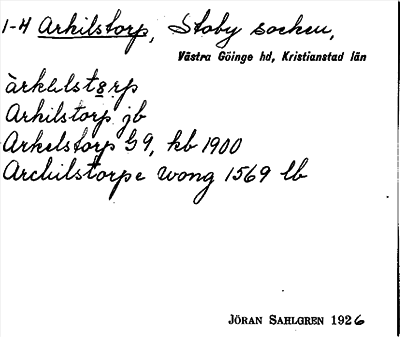 1-4 Arkilstorp, Stoby socken,
Västra Göinge hd, Kristianstad län
Arkilstorp jb
Arkelstorp G9, kb 1900
Archilstorpe wong 1569 lb
JÖRAN SAHLGREN 1926